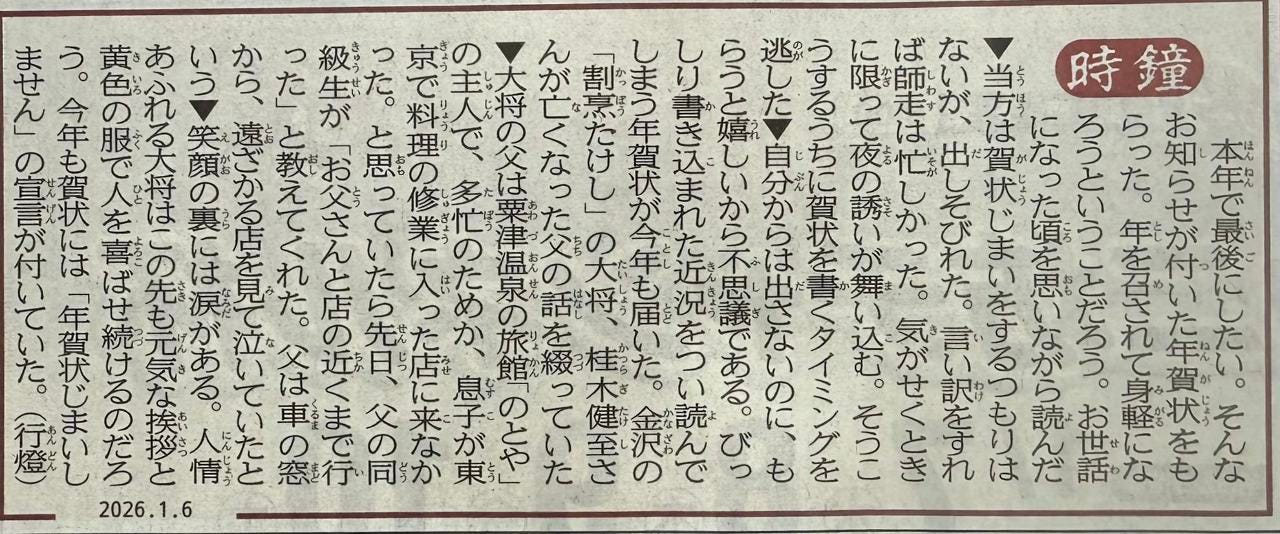 時鐘
本年で最後にしたい。そんな
お知らせが付いた年賀状をも
らった。年を召されて身軽にな
ろうということだろう。お世話
になった頃を思いながら読んだ
▼当方は賀状じまいをするつもりは
ないが、出しそびれた。言い訳をすれ
ば師走は忙しかった。気がせくとき
に限って夜の誘いが舞い込む。そうこ
うするうちに賀状を書くタイミングを
逃した▼自分からは出さないのに、も
らうと嬉しいから不思議である。びっ
しり書き込まれた近況をつい読んで
しまう年賀状が今年も届いた。金沢の
「割烹たけし」の大将、桂木健至さ
んが亡くなった父の話を綴っていた
▼大将の父は粟津温泉の旅館「のとや」
の主人で、多忙のためか、息子が東
京で料理の修業に入った店に来なか
った。と思っていたら先日、父の同
級生が「お父さんと店の近くまで行
った」と教えてくれた。父は車の窓
から、遠ざかる店を見て泣いていたと
いう▼笑顔の裏には涙がある。人情
あふれる大将はこの先も元気な挨拶と
黄色の服で人を喜ばせ続けるのだろ
う。今年も賀状には「年賀状じまいし
ません」の宣言が付いていた。(行燈)
2026.1.6